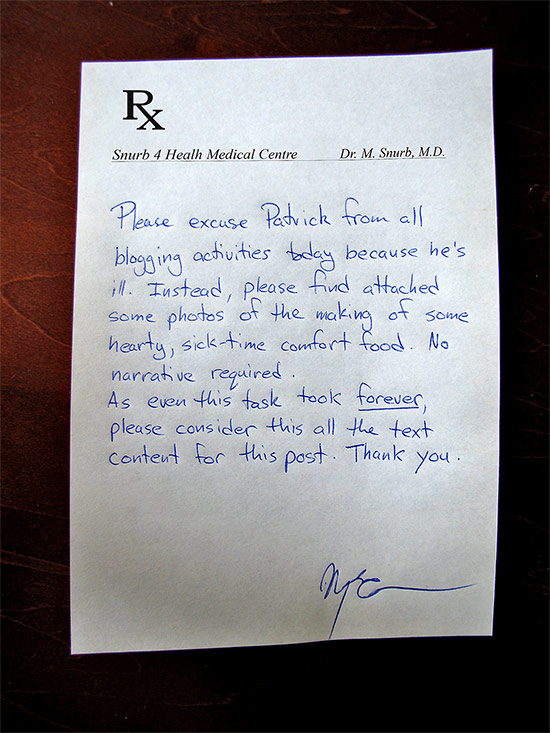 Rx
Snurb 4 Healh Medical Centre Dr. M. Snurb, M.D.
Please excuse Patrick from all
blogging activities today because he's
ill. Instead, please find attached
some photos of the making of some
hearty, sick-time comfort food. No
narrative required.
As even this task took forever,
please consider this all the text
content for this post. Thank you.